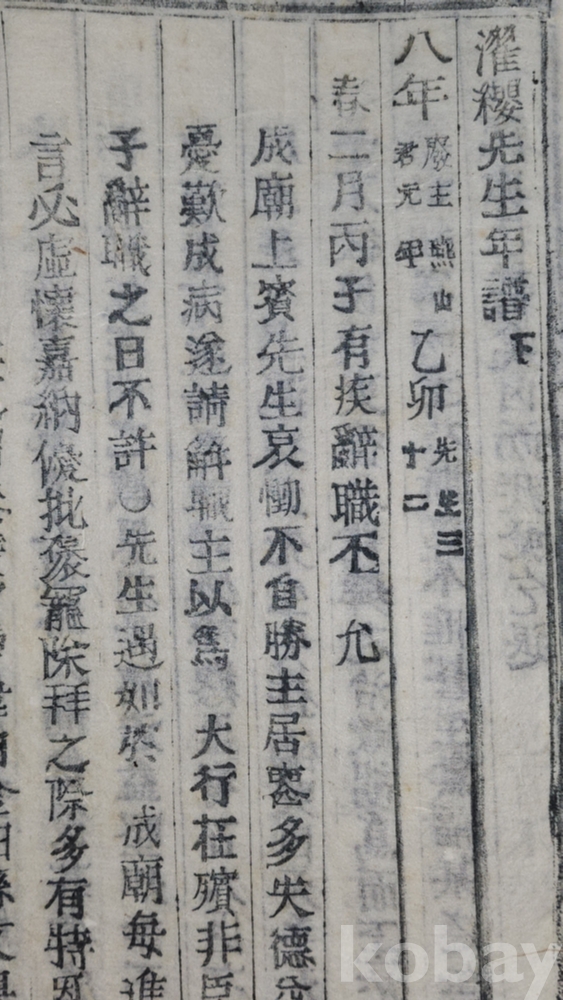 濯纓先生年譜下
八年廢主燕山君元年乙卯先生三十二
春二月丙子有疾辭職不 允
成廟上賓先生哀慟不自勝主居憂多失德
憂歎成病遂請解職主以爲 大行在殯非臣
子辭職之日不許○先生遇知 成廟每進
言必虛懷嘉納優批褒寵除拜之際多有特恩
kobay